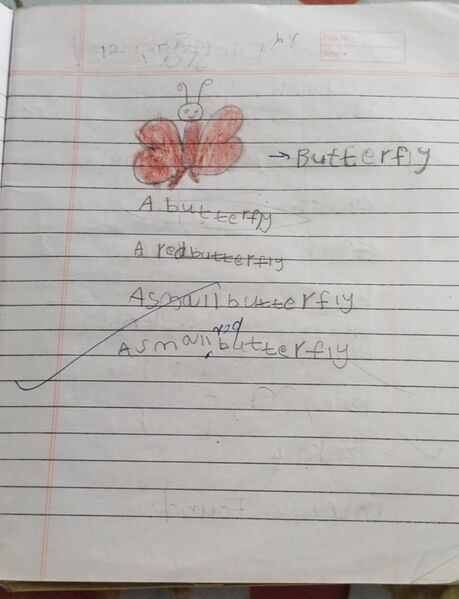 Page No.:
Date:
→ Butterfly
A butterfly
A red butterfly
A small butterfly
A small red butterfly